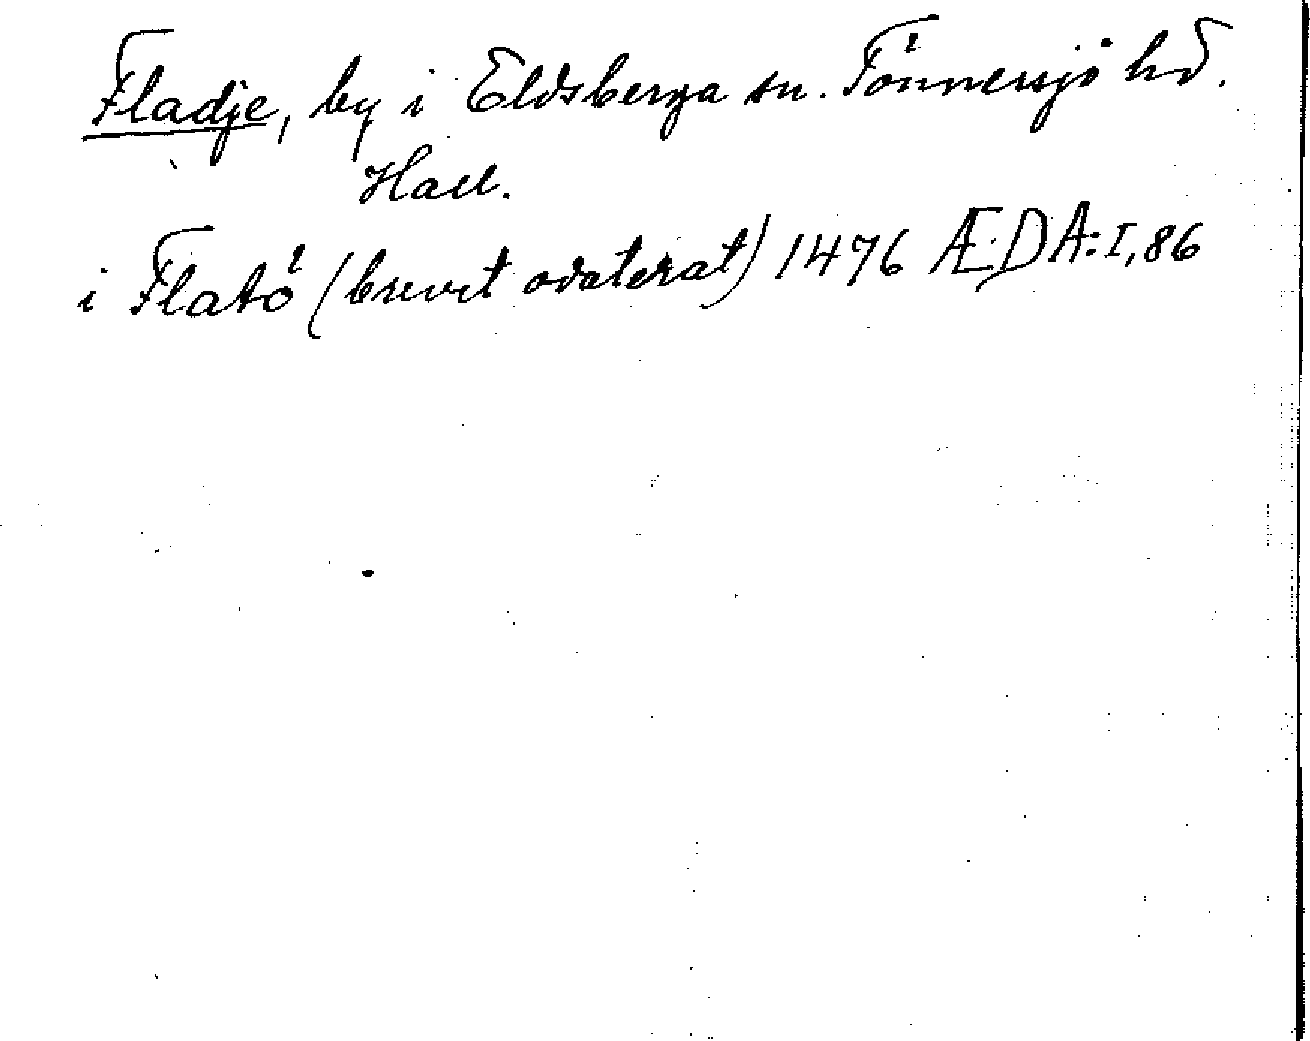 Fladje, by i Eldsberga sn. Tönnersjö hd.
Hall.
i Flató (brevet odaterat) 1476 ÆDA: I, 86